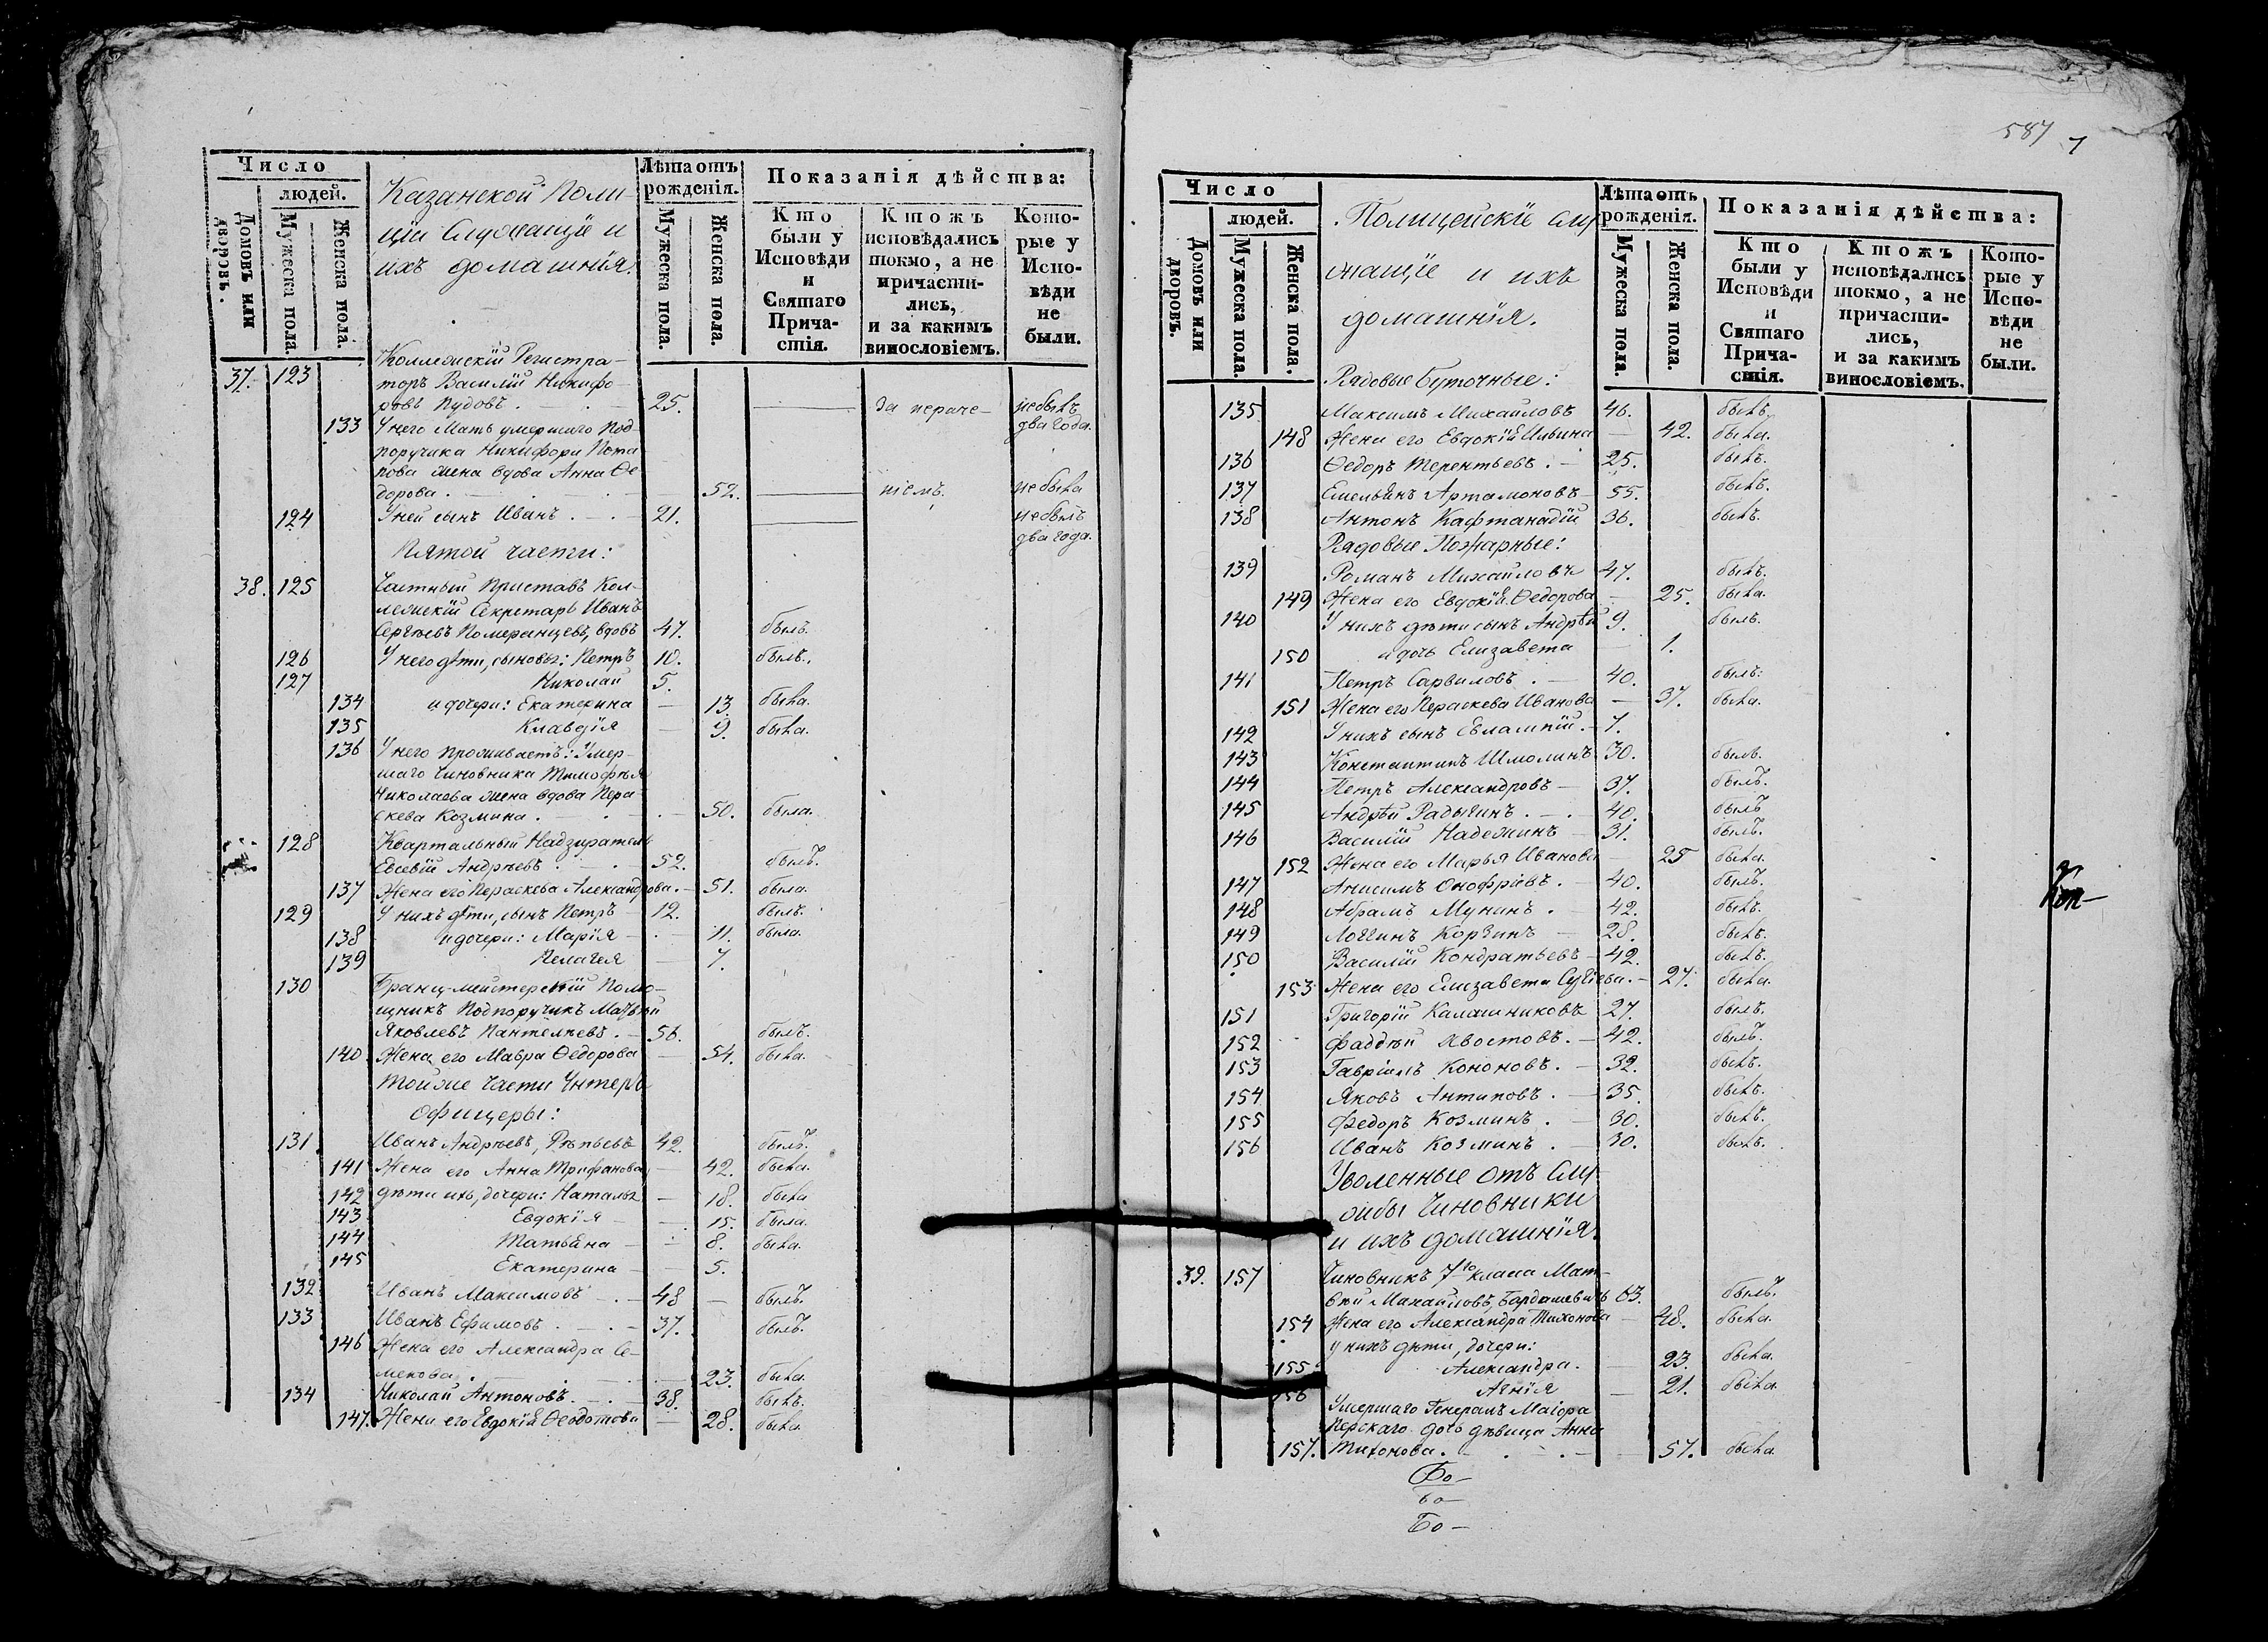 Число
людей.
Домовъ или дворовъ.
Мужеска пола.
Женска пола.
Казанской Поли-
ціи Служащіе и
ихъ домашнія.
Лѣта отъ
рожденія.
Мужеска пола.
Женска пола.
Показанія дѣйства:
Кто
были у
Исповѣди
и
Святаго
Прича-
стія.
Ктожъ
исповѣдались
токмо, а не
причасти-
лись,
и за какимъ
винословіемъ.
Кото-
рые у
Испо-
вѣди
не
были.
Коллежскій Регистра-
37. 123 торъ Василій Никифо-
ровъ Пудовъ. 25. За нераче- не былъ
133 У него Мать умершаго Под- два года.
поручика Никифора Пота
пова жена вдова Анна Ѳе
дорова. 52. ніемъ. не была
124 У ней сынъ Иванъ. 21. не былъ
два года.
Пятой части:
38. 125 Частный Приставъ Кол-
лежскій Секретарь Иванъ
Сергѣевъ Померанцевъ, вдовъ 47. былъ.
126 У него дѣти, сыновья: Петръ 10. былъ.
127 Николай 5.
134 и дочери: Екатерина 13. была.
135 Клавдія 9. была.
136 У него проживаетъ: Умер-
шаго Чиновника Тимофѣя
Николаева жена вдова Пера
скева Козмина. 50. была.
128 Квартальный Надзиратель
Евсевій Андрѣевъ. 52. былъ.
137 Жена его Пераскева Александрова. 51. была.
129 У нихъ дѣти, сынъ Петръ 12. былъ.
138 и дочери: Марія 11. была.
139 Пелагея 7.
130 Бранц-мейстерскій Помо-
щникъ Подпоручикъ Матвѣй
Яковлевъ 56. былъ.
140. Жена его Мавра Ѳедорова 54. была.
Той же Части Унтеръ
Офицеры:
131. Иванъ Андрѣевъ, Рѣпьевъ 42. былъ.
141 Жена его Анна Трифанова 42. была.
142 Дѣти ихъ, дочери: Наталья 18. была
143 Евдокія 15. была.
144 Татьяна 8. была.
145 Екатерина 5.
132 Иванъ Максимовъ 48 былъ.
133 Иванъ Ефимовъ. 37. былъ.
146 Жена его Александра Се-
менова. 23. была.
134 Николай Антоновъ. 38. былъ.
147. Жена его Евдокія Ѳеодотова 28. была.
587 7
Число
людей.
Домовъ или дворовъ.
Мужеска пола.
Женска пола.
Полицейскіе слу
жащіе и ихъ
домашнія.
Лѣта отъ
рожденія.
Мужеска пола.
Женска пола.
Показанія дѣйства:
Кто
были у
Исповѣди
и
Святаго
Прича-
стія.
Ктожъ
исповѣдались
токмо, а не
причасти-
лись,
и за какимъ
винословіемъ.
Кото-
рые у
Испо-
вѣди
не
были.
Рядовые Буточные:
135 Максимъ Михайловъ 46. былъ.
148 Жена его Евдокія Ильина 42. была.
136 Ѳедоръ Терентьевъ. 25. былъ.
137 Емельянъ Артамоновъ 55. былъ.
138 Антонъ Кафтанадій 36. былъ.
Рядовые Пожарные:
139 Романъ Михайловъ 47. былъ.
149 Жена его Евдокія Ѳедорова 25. была.
140 У нихъ дѣти сынъ Андрѣй 9. былъ.
150 и дочь Елизавета 1.
141 Петръ Сарвиловъ. 40. былъ.
151 Жена его Пераскева Иванова 37. была.
142 У нихъ сынъ Евлампій. 7.
143 Константинъ Шмолинъ 30. былъ.
144 Петръ Александровъ 37. былъ.
145 Андрѣй Радыгинъ. 40. былъ
146 Василій Надежинъ 31. былъ.
152 Жена его Марья Иванова 25 была.
147 Анисимъ Онофріевъ. 40. былъ.
148 Абрамъ Мунинъ. 42. былъ.
149 Логгинъ Коргинъ 28. былъ.
150 Василій Кондратьевъ 42. былъ.
153 Жена его Елизавета Сергіева. 27. была.
151 Григорій Калашниковъ 27. былъ.
152 Фаддѣй Хвостовъ. 42. былъ.
153 Гавріилъ Кононовъ. 32. былъ.
154 Яковъ Антиповъ. 35. былъ.
155 Федоръ Козминъ. 30. былъ.
156 Иванъ Козминъ. 30. былъ.
Уволенные отъ Слу
жбы Чиновники
и ихъ домашнія.
39. 157 Чиновникъ 7го класса Мат-
вѣй Михайловъ, Бардашевичь 63. былъ.
154 Жена его Александра Тихонова 48. была.
У нихъ дѣти, дочери:
155 Александра. 23. была.
156 Агнія 21. была.
Умершаго Генералъ Маіора
Перскаго дочь дѣвица Анна
157. Тихонова. 57. была.
Бо-